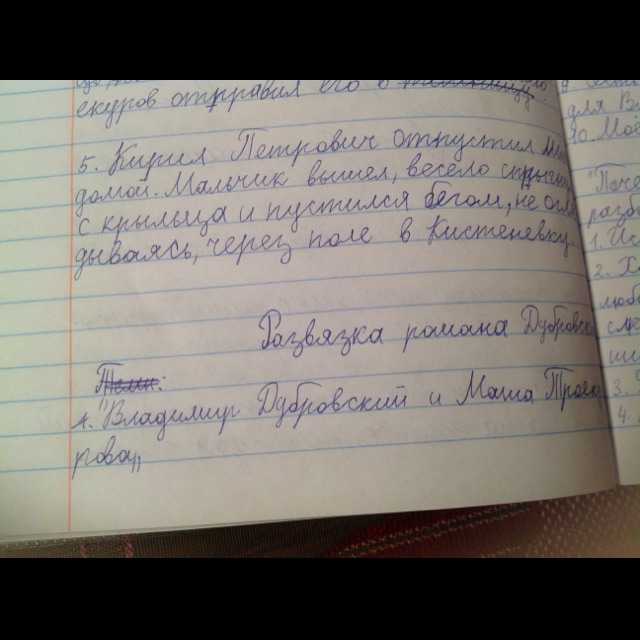 екуров отправил его в
5. Кирил Петрович отпустил
домой. Мальчик вышел, весело
с крыльца и пустился бегом, не огля
дываясь, через поле в Кистеневку
Развязка романа Дубровс
1. "Владимир Дубровский и Маша Трое
рова„
для В
Поче
разб
1. Ис
2. Х
любо
3.
4.